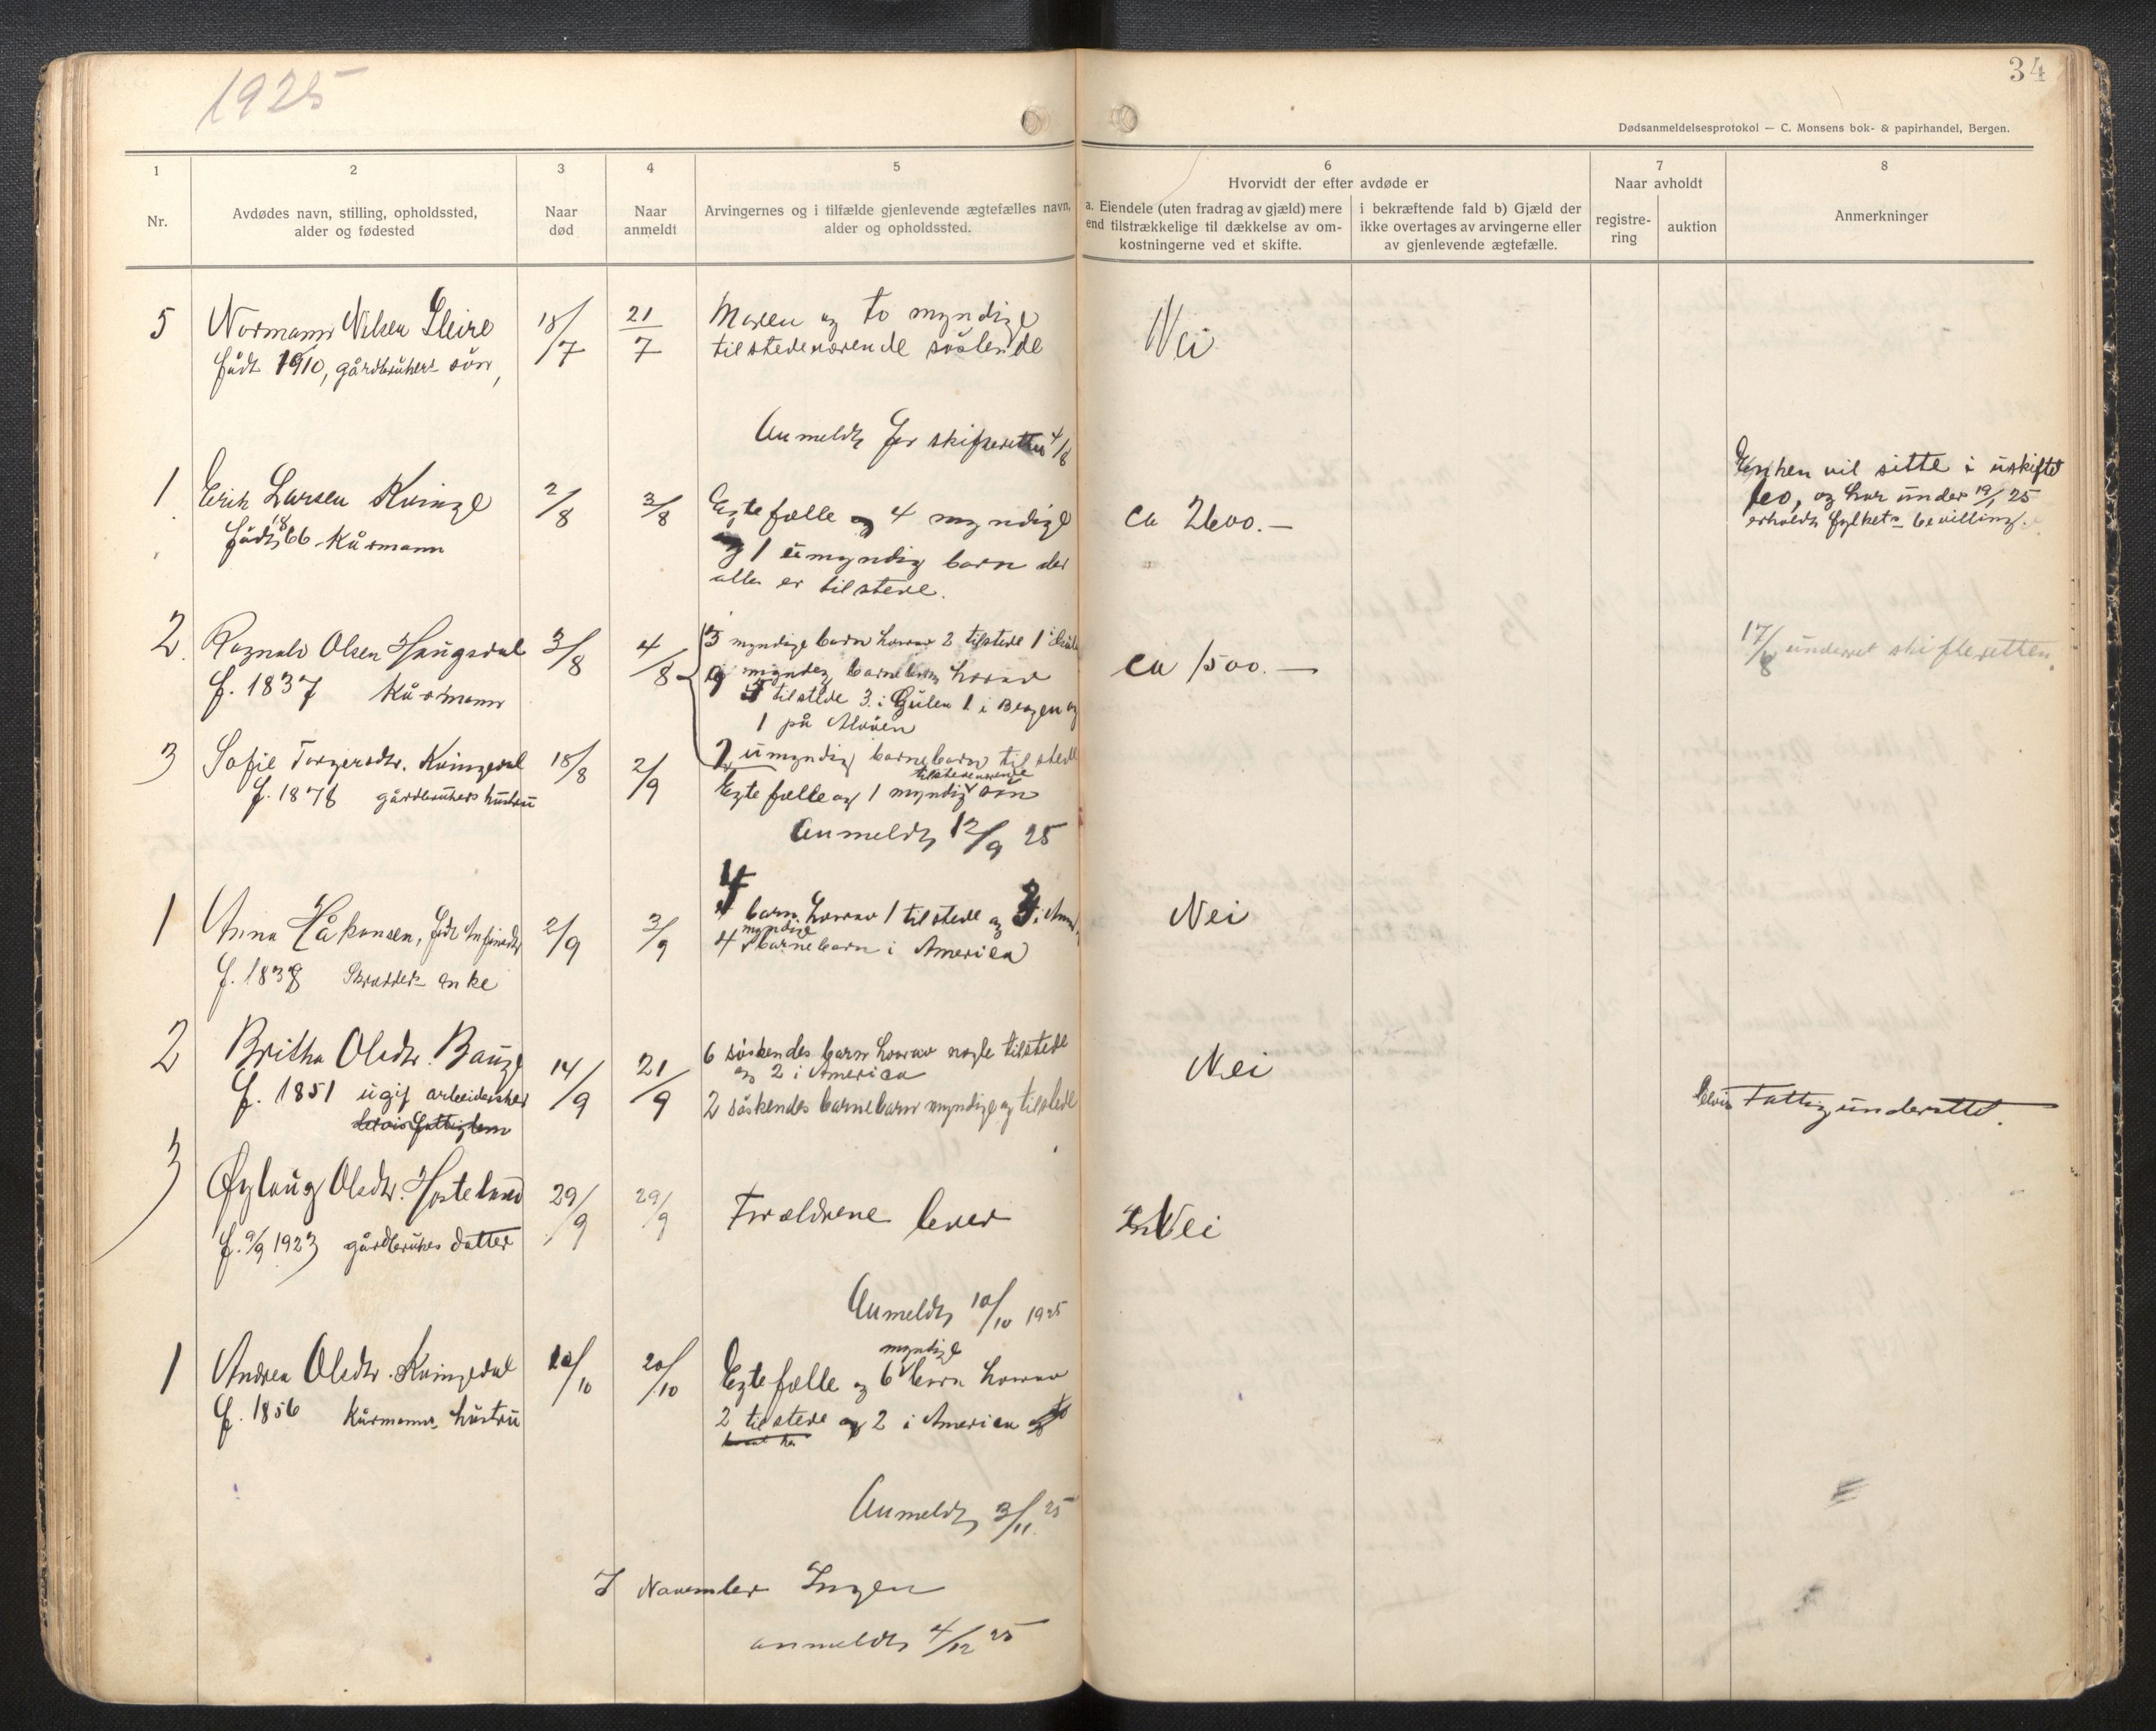 1925
34
Dødsanmeldelsesprotokol — C. Monsens bok- & papirhandel, Bergen.
1
Nr.
2
Avdødes navn, stilling, opholdssted,
alder og fødested
3
Naar
død
4
Naar
anmeldt
5
Arvingernes og i tilfælde gjenlevende ægtefælles navn,
alder og opholdssted.
6
Hvorvidt der efter avdøde er
a. Eiendele (uten fradrag av gjæld) mere
end tilstrækkelige til dækkelse av om-
kostningerne ved et skifte.
i bekræftende fald b) Gjæld der
ikke overtages av arvingerne eller
av gjenlevende ægtefælle.
7
Naar avholdt
registre-
ring
auktion
8
Anmerkninger
5 Normann Nilsen 18/7 21/7 Moren og to myndige Nei
født 1910, gårdbrukers søn, tilstedeværende
Anmeldt for skifteretten 4/8
1 Erik Larsen Kvinge 2/8 3/8 Egtefælle og 4 myndige ca 2600.— Enken vil sitte i uskiftet
født 1866 Kårmann og 1 umyndig barn der bo, og har under 19/1 25
alle er tilstede. erholdt fylkets bevilling.
2 Ragnald Olsen Haugsdal 3/8 4/8 3 myndige barn hvorav 2 tilstede 1 i ca 1500.— 17/8 underret skifteretten.
f. 1837 Kårmann 9 myndig barnebarn hvorav
tilstede 3 i Gulen 1 i Bergen og
1 på Alvøen
2 umyndig barnebarn tilstede
3 Sofie Torgersdtr. Kvingedal 18/8 2/9 Egtefælle og 1 myndig tilstedeværende søn
f. 1878 gårdbrukers hustru
Anmeldt 12/9 25
1 Anna Håkonsen, født 2/9 3/9 4 barn hvorav 1 tilstede og 3 i Nei
f. 1838 Skrædder enke 4 myndige barnebarn i America
2 Britha Olsdtr. Bauge 14/9 21/9 6 søskendes barn hvorav nogle tilstede Nei
og 2 i America
f. 1851 ugif arbeiderske 2 søskendes barnebarn myndige og tilstede Fattig underettet.
3 Øylaug Olsdtr. Hosteland 29/9 29/9 Forældrene lever Nei
f. 9/9 1923 gårdbrukes datter
Anmeldt 10/10 1925
1 Andrea Olsdtr. Kvingedal 20/10 Egtefælle og 6 myndige barn hvorav
f. 1856 Kårmanns hustru 2 tilstede og 2 i America
Anmeldt 3/11 25
I November Ingen
anmeldt 4/12 25